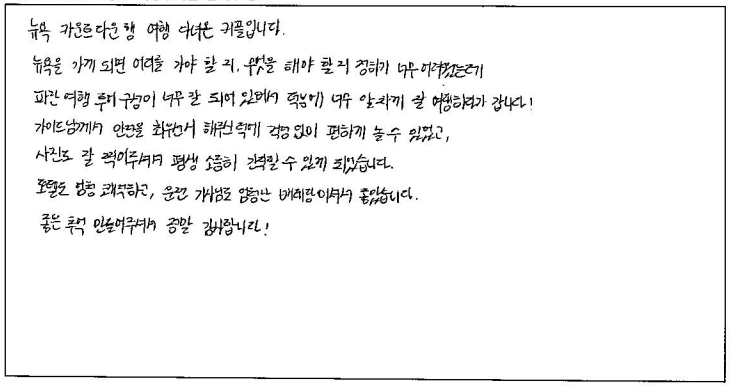 뉴욕 카운트다운 행 여행 다녀온 커플입니다.
뉴욕을 가게 되면 어디를 가야 할 지, 무엇을 해야 할 지 정하기 너무 어려웠는데
파란 여행 투어 구성이 너무 잘 되어 있어서 덕분에 너무 알차게 잘 여행하다가 갑니다!
가이드님께서 안전을 최우선시 해주신 덕에 걱정 없이 편하게 놀 수 있었고,
사진도 잘 찍어주셔서 평생 소중히 간직할 수 있게 되었습니다.
호텔도 엄청 쾌적하고, 운전 기사님도 엄청난 베테랑이셔서 좋았습니다.
좋은 추억 만들어주셔서 정말 감사합니다!